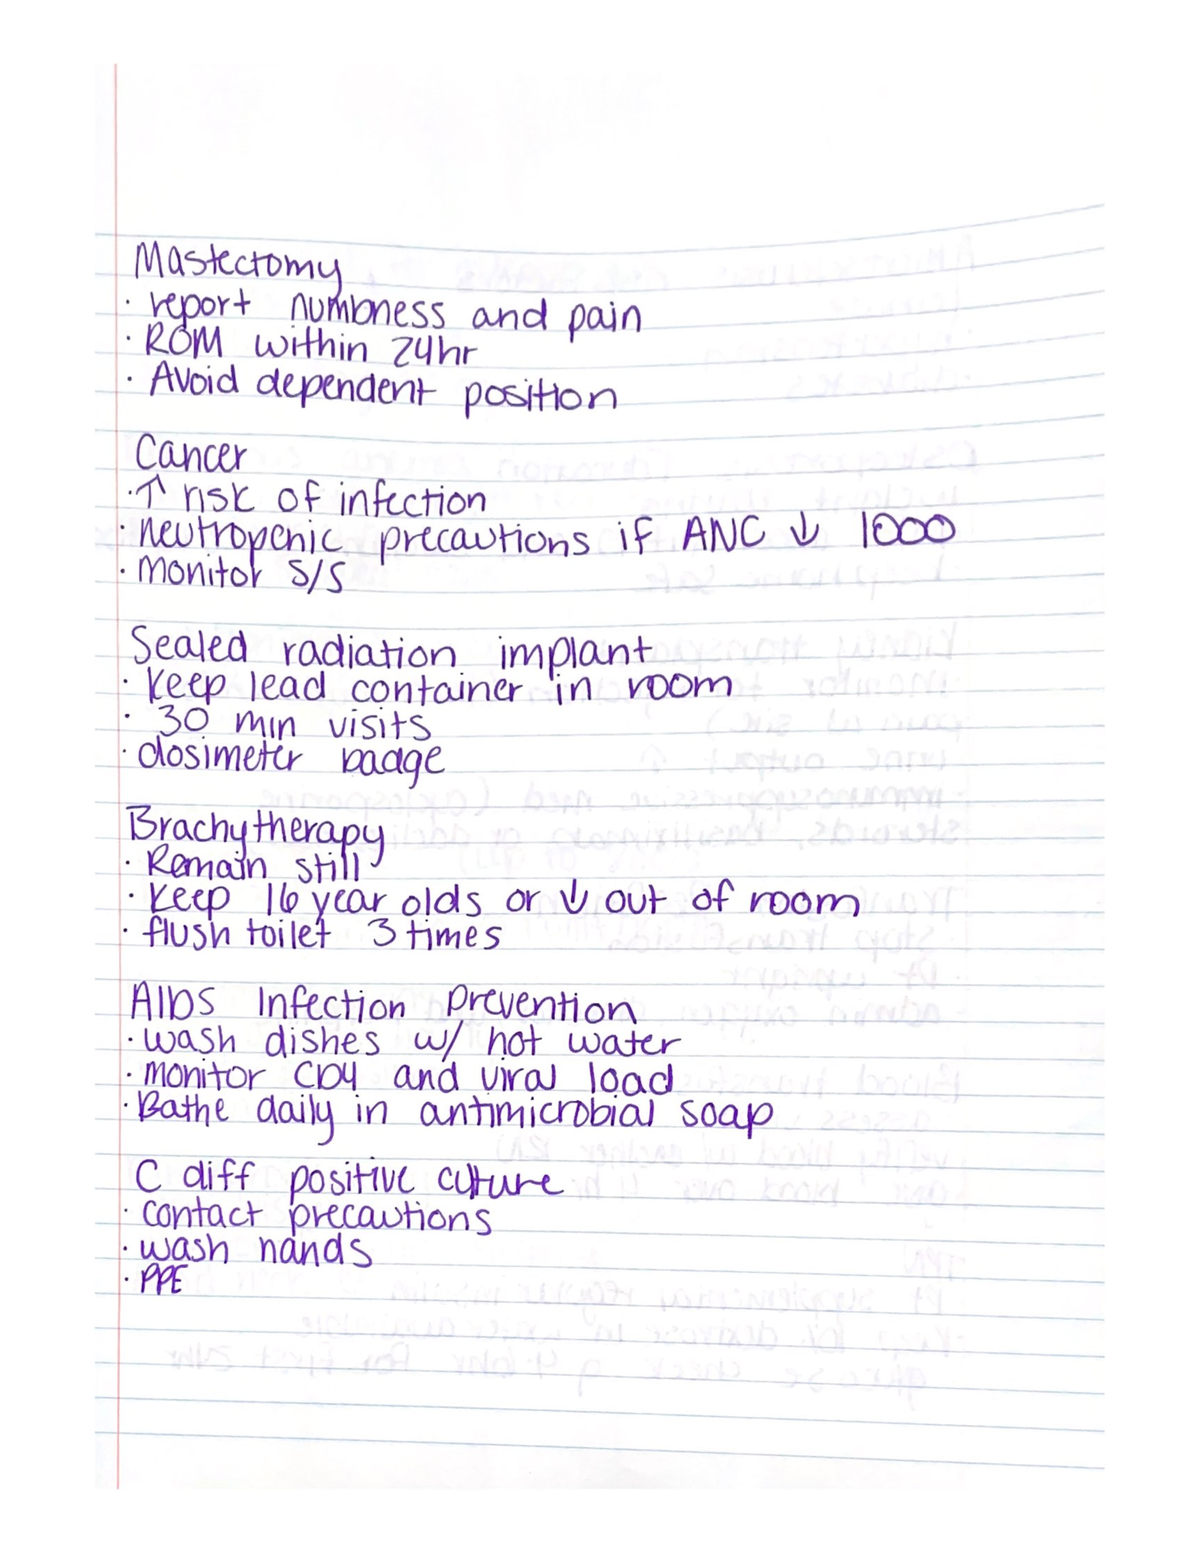 Mastectomy
· report numbness and pain
· ROM within 24hr
· Avoid dependent position
Cancer
· ↑ risk of infection
· neutropenic precautions if ANC ↓ 1000
· monitor S/S
Sealed radiation implant
· keep lead container in room
· 30 min visits
· dosimeter badge
Brachytherapy
· Remain still
· keep 16 year olds or ↓ out of room
· flush toilet 3 times
AIDS Infection Prevention
· wash dishes w/ hot water
· monitor CD4 and viral load
· Bathe daily in antimicrobial soap
C diff positive culture
· contact precautions
· wash hands
· PPE